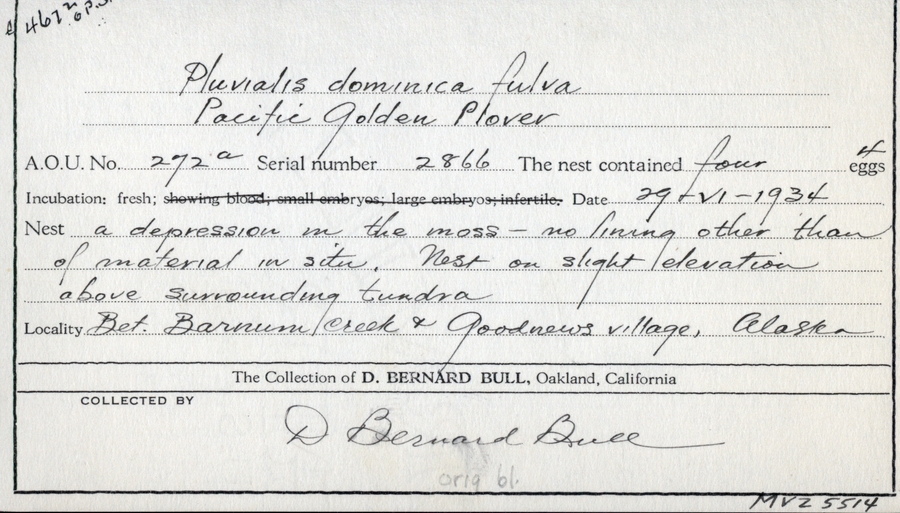 4672
Pluvialis dominica fulva
Pacific Golden Plover
A.O.U. No. 272a Serial number 2866 The nest contained four eggs
Incubation: fresh; showing blood; small embryos; large embryos; infertile. Date 29-VI-1934
Nest a depression in the moss - no lining other than
of material in situ. Nest on slight elevation
above surrounding tundra
Locality Bet. Barnum Creek & Goodnews village, Alaska
The Collection of D. BERNARD BULL, Oakland, California
COLLECTED BY
D Bernard Bull
orig bl.
MVZ 5514